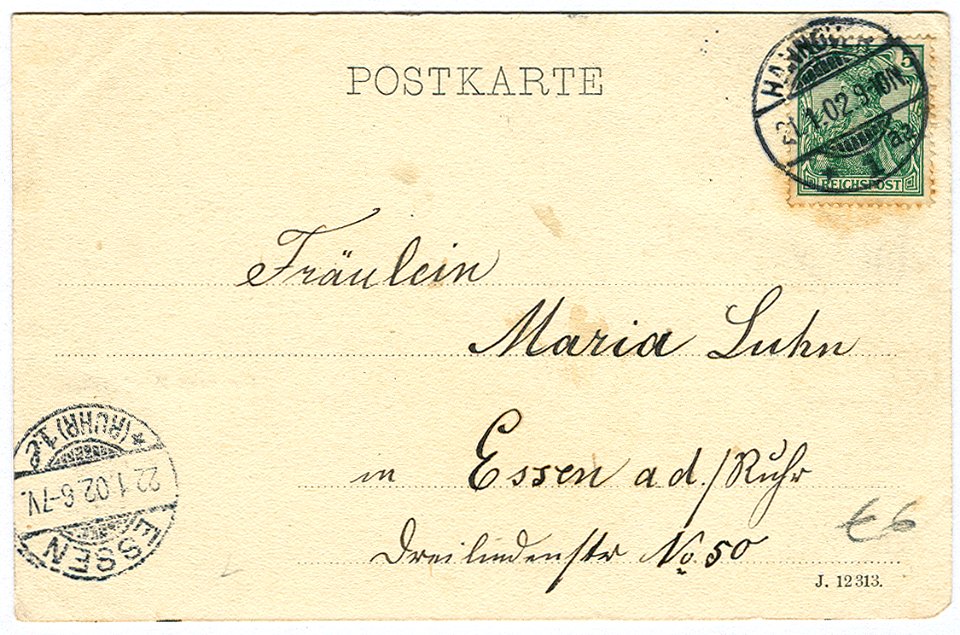 POSTKARTE
HANNOVER
21.1.02.9-10N.
* 1 aa
5
REICHSPOST
Fräulein
Maria Luhn
in Essen a d./Ruhr
Dreilindenstr No. 50
ESSEN
22.1.02.6-7V.
*(RUHR) 1e
€6
J. 12313.